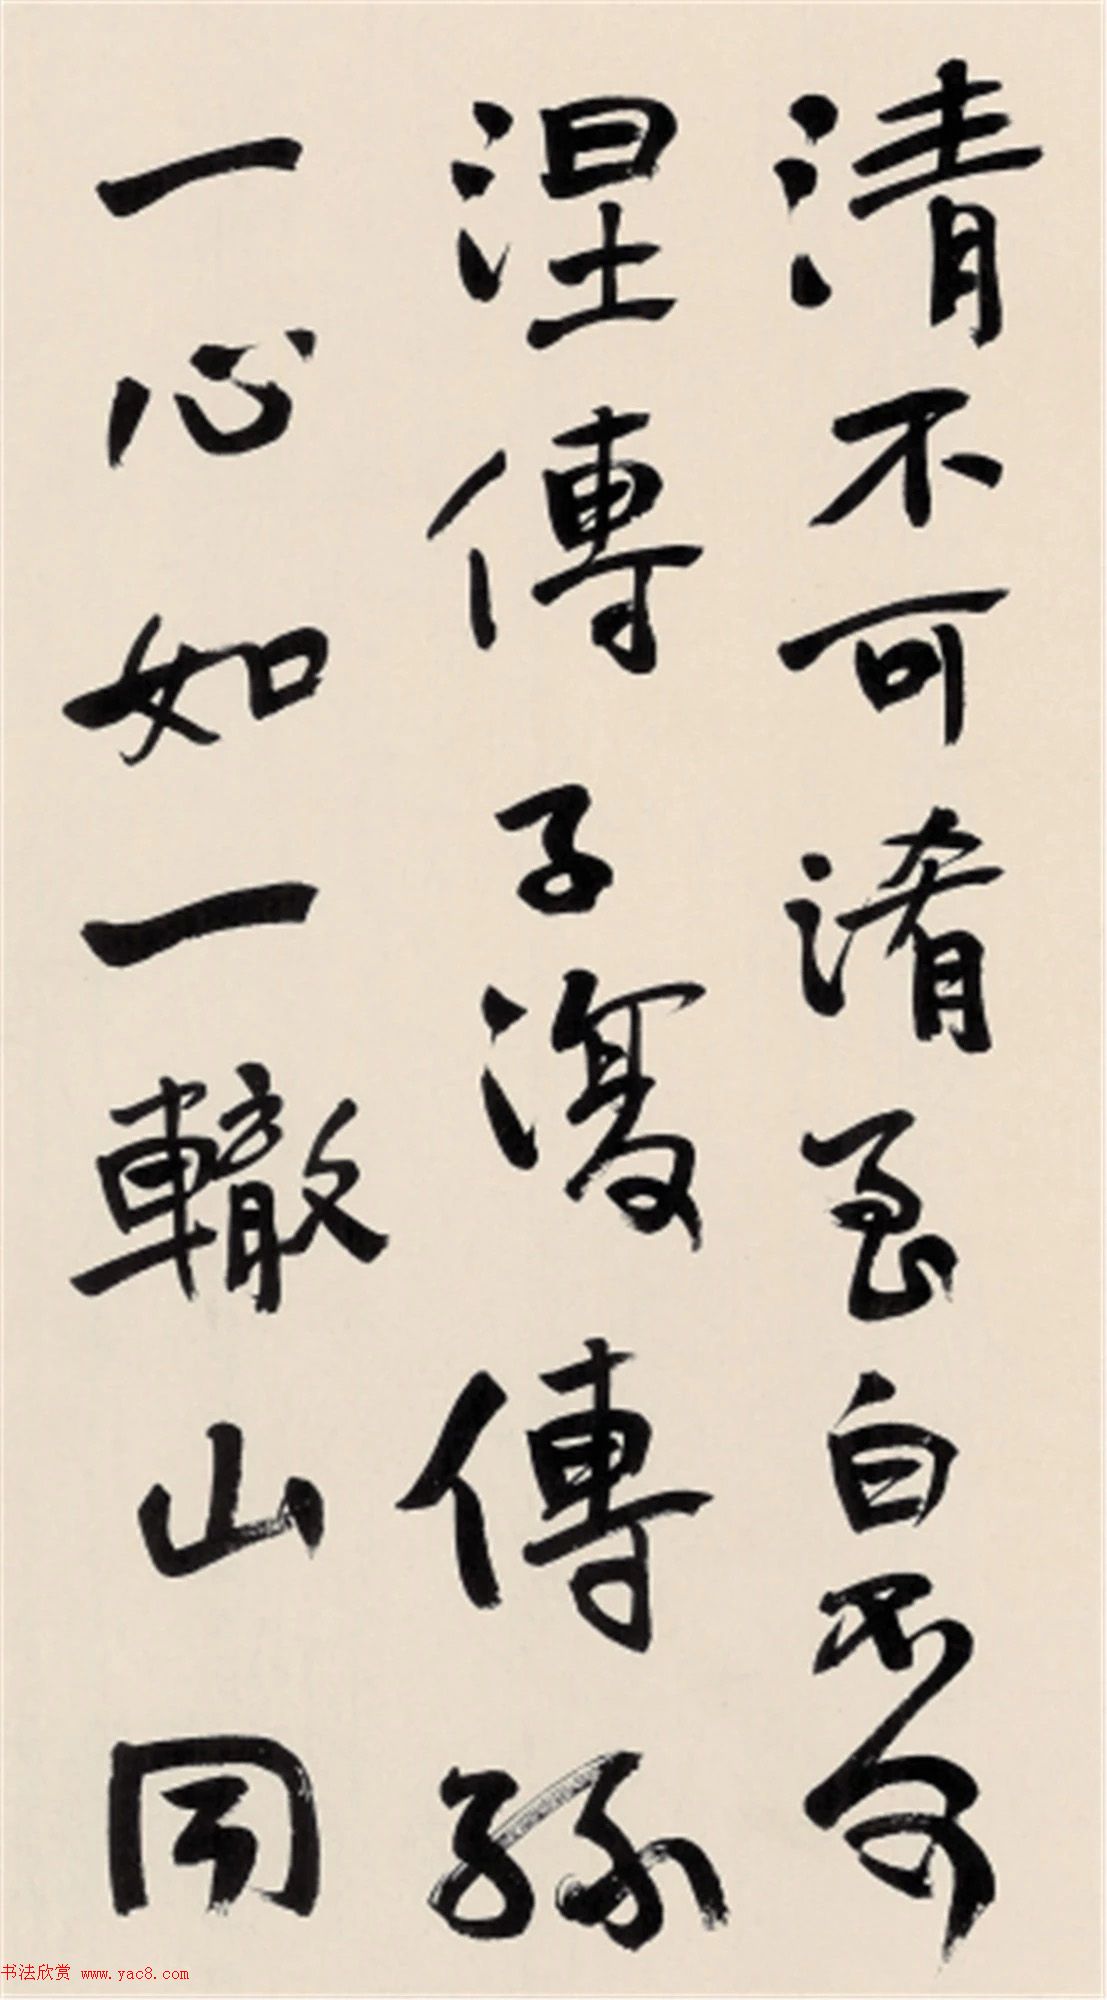 清不可淆至白不可
涅傳子復傳孫
一心如一轍山同
书法欣赏 www.yac8.com